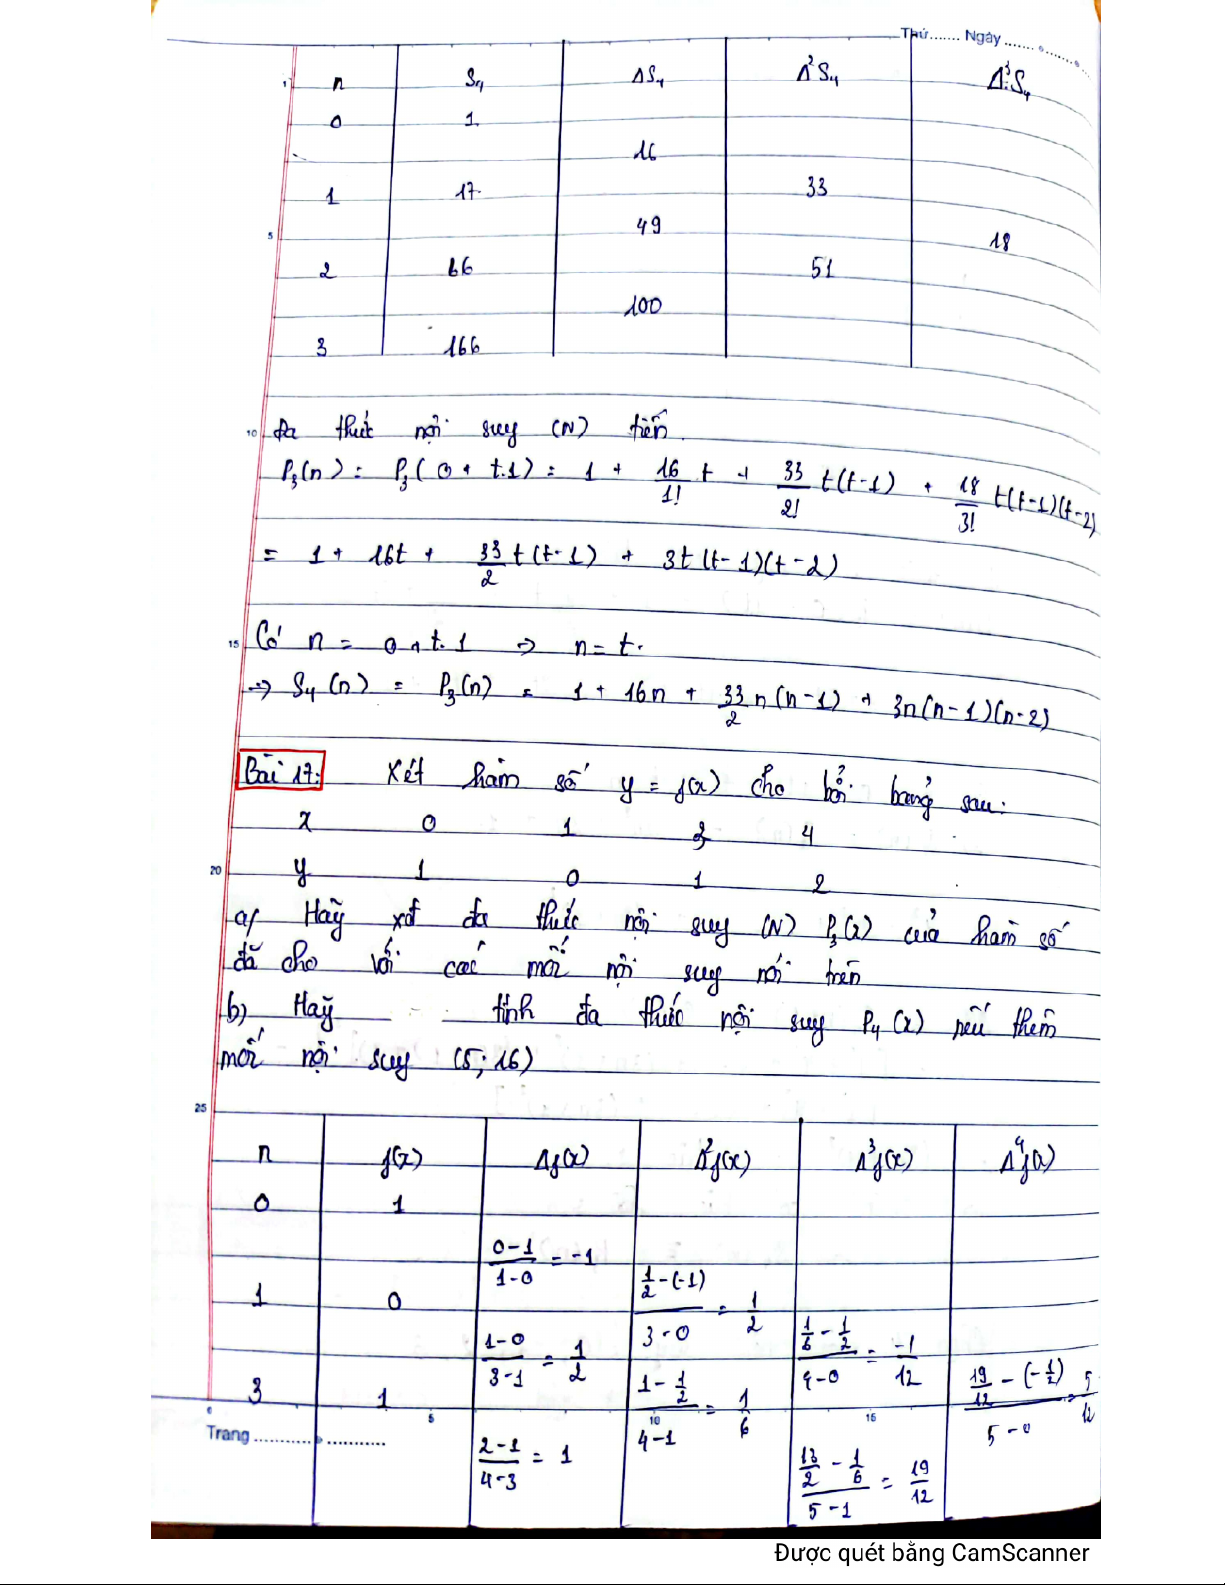 Thứ....... Ngày.......
n S₄ ΔS₄ Δ²S₄ Δ³S₄
0 1
16
1 17 33
49 18
2 66 51
100
3 166
Đa thức nội suy (N) tiến
P₃(n) = P₃(0 + t.1) = 1 + 16/1! t + 33/2! t(t-1) + 18/3! t(t-1)(t-2)
= 1 + 16t + 33/2 t(t-1) + 3t(t-1)(t-2)
Có n = 0 + t.1 => n = t.
=> S₄(n) = P₃(n) = 1 + 16n + 33/2 n(n-1) + 3n(n-1)(n-2)
Bài 17: Xét hàm số y = f(x) cho bởi bảng sau:
x 0 1 3 4
y 1 0 1 2
a/ Hãy xđ đa thức nội suy (N) P₃(x) của hàm số
đã cho với các mốc nội suy nói trên
b) Hãy tính đa thức nội suy P₄(x) nếu thêm
mốc nội suy (5; 16)
n f(x) Δf(x) Δ²f(x) Δ³f(x) Δ⁴f(x)
0 1
(0-1)/(1-0) = -1
1 0 (1/2-(-1))/(3-0) = 1/2
(1-0)/(3-1) = 1/2 (1/6-1/2)/(4-0) = -1/12
3 1 (1-1/2)/(4-1) = 1/6 (19/12-(-1/2))/(5-0) = 5/12
(2-1)/(4-3) = 1 (13/2-1/6)/(5-1) = 19/12
Trang.......................
5 10 15 20 25
0 5 10 15
Được quét bằng CamScanner